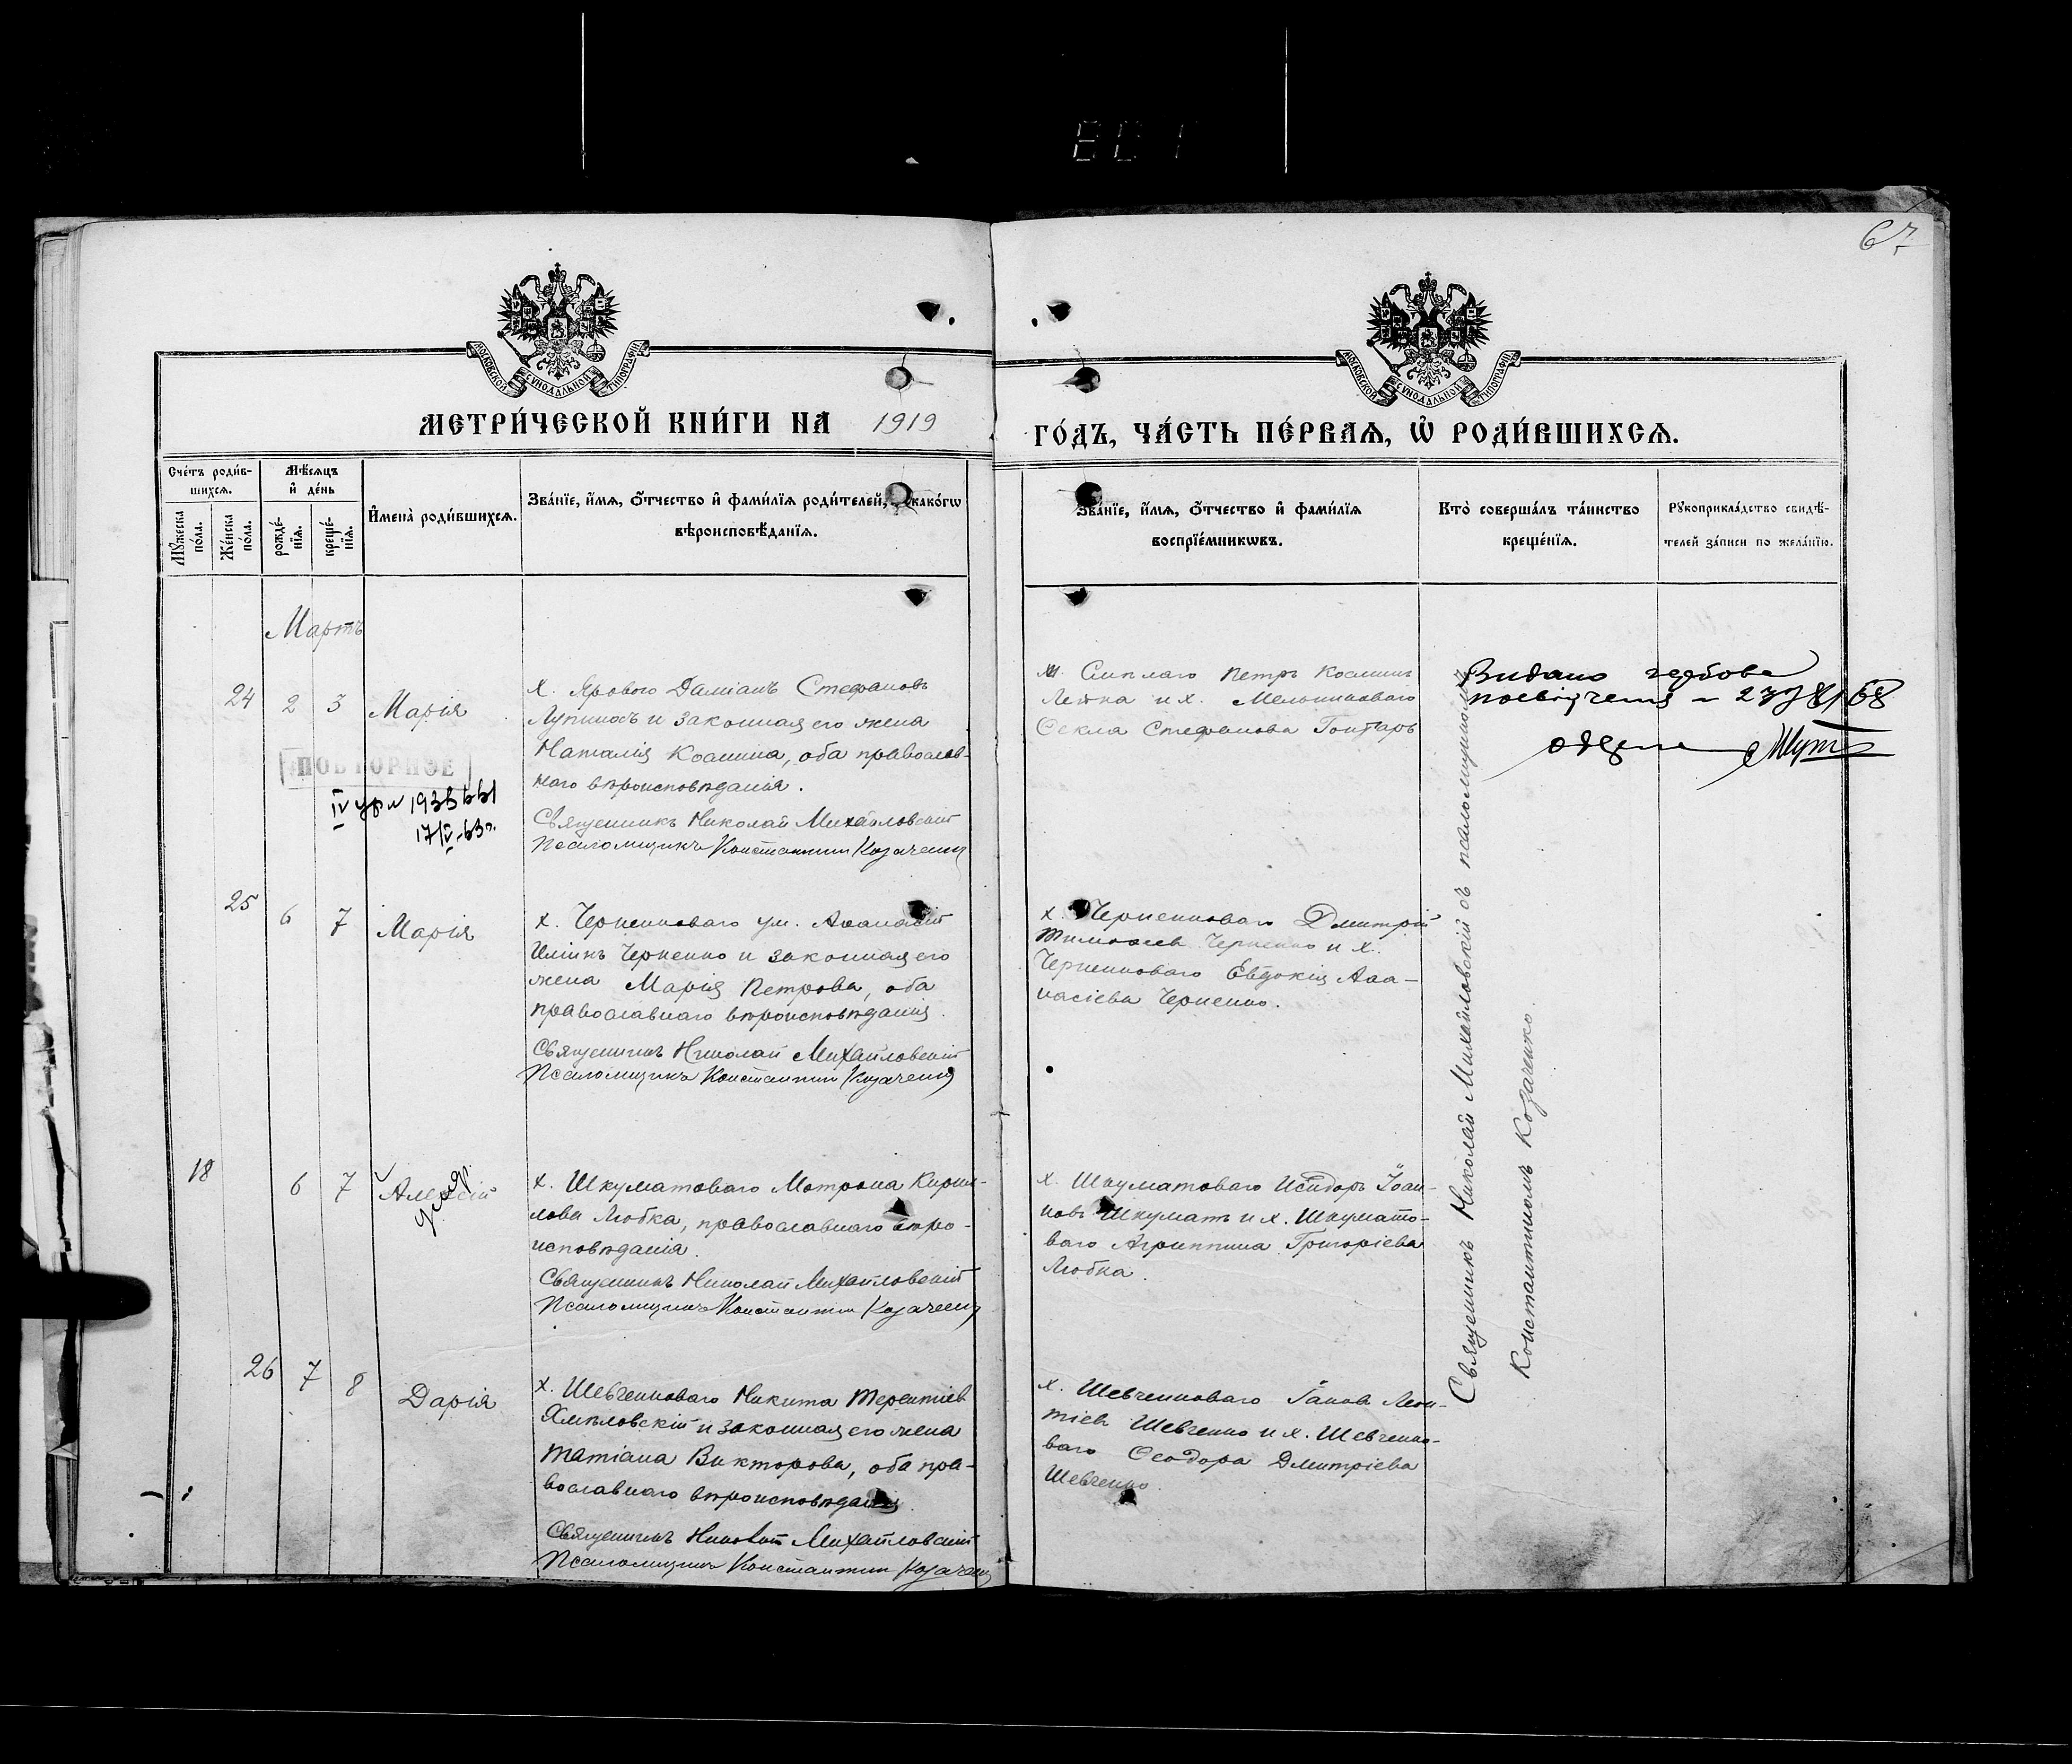 67
МОСКОВСКОЙ СУНОДАЛЬНОЙ ТИПОГРАФІИ
МОСКОВСКОЙ СУНОДАЛЬНОЙ ТИПОГРАФІИ
МЕТРИ́ЧЕСКОЙ КНИ́ГИ НА 1919
ГО́ДЪ, ЧА́СТЬ ПЕ́РВАѦ, Ѽ РОДИ́ВШИХСѦ.
Сче́тъ роди́в-
шихсѧ.
Мꙋ́жеска по́ла.
Же́нска по́ла.
Мѣ́сѧцъ
и҆ де́нь
рожде́-
нїѧ.
креще́-
нїѧ.
И҆мена̀ роди́вшихсѧ.
Зва́нїе, и҆́мѧ, ѻ҆́тчество и҆ фами́лїѧ роди́телей, како́гѡ
вѣроисповѣ́данїѧ.
Зва́нїе, и҆́мѧ, ѻ҆́тчество и҆ фами́лїѧ
воспрїе́мникѡвъ.
Кто̀ соверша́лъ та́инство
креще́нїѧ.
Рꙋкоприкла́дство свидѣ́-
телей за́писи по жела́нїю.
Мартъ
24 2 3 Марія
х. Ярового Даміанъ Стефановъ
Лупиносъ и законная его жена
Наталія Космина, оба православ-
наго вѣроисповѣданія.
Священникъ Николай Михайловскій
Псаломщикъ Константин Козаченко
ПОВТОРНОЕ
17/IV-63г.
Петръ Космин
и х. Мельниковаго
Ѳекла Стефанова Гонтарь
Видано гербове
25 6 7 Марія
х. Черненковаго ум. Аѳанасій
Иліинъ Черненко и законная его
жена Марія Петрова, оба
православнаго вѣроисповѣданія.
Священникъ Николай Михайловскій
Псаломщикъ Константин Козаченко
х. Черненковаго Дмитрій
Тимоѳеев Черненко и х.
Черненковаго Евдокія Аѳа-
насіева Черненко.
18 6 7 Алексій
х. Шкуматоваго Мотрона Кирил-
лова Любка, православнаго вѣро-
исповѣданія.
Священникъ Николай Михайловскій
Псаломщикъ Константин Козаченко
х. Шкуматоваго Исидоръ Іоан-
новъ Шкуматъ и х. Шкумато-
ваго Агриппина Григоріева
Любка.
26 7 8 Дарія
х. Шевченковаго Никита Терентіев
Хмѣловскій и законная его жена
Татіана Викторова, оба пра-
вославнаго вѣроисповѣданія.
Священникъ Николай Михайловскій
Псаломщикъ Константин Козаченко
х. Шевченковаго Іаков Леон-
тіев Шевченко и х. Шевченко-
ваго Ѳеодора Дмитріева
Шевченко.
Священникъ Николай Михайловскій съ псаломщикомъ
Константиномъ Козаченко.